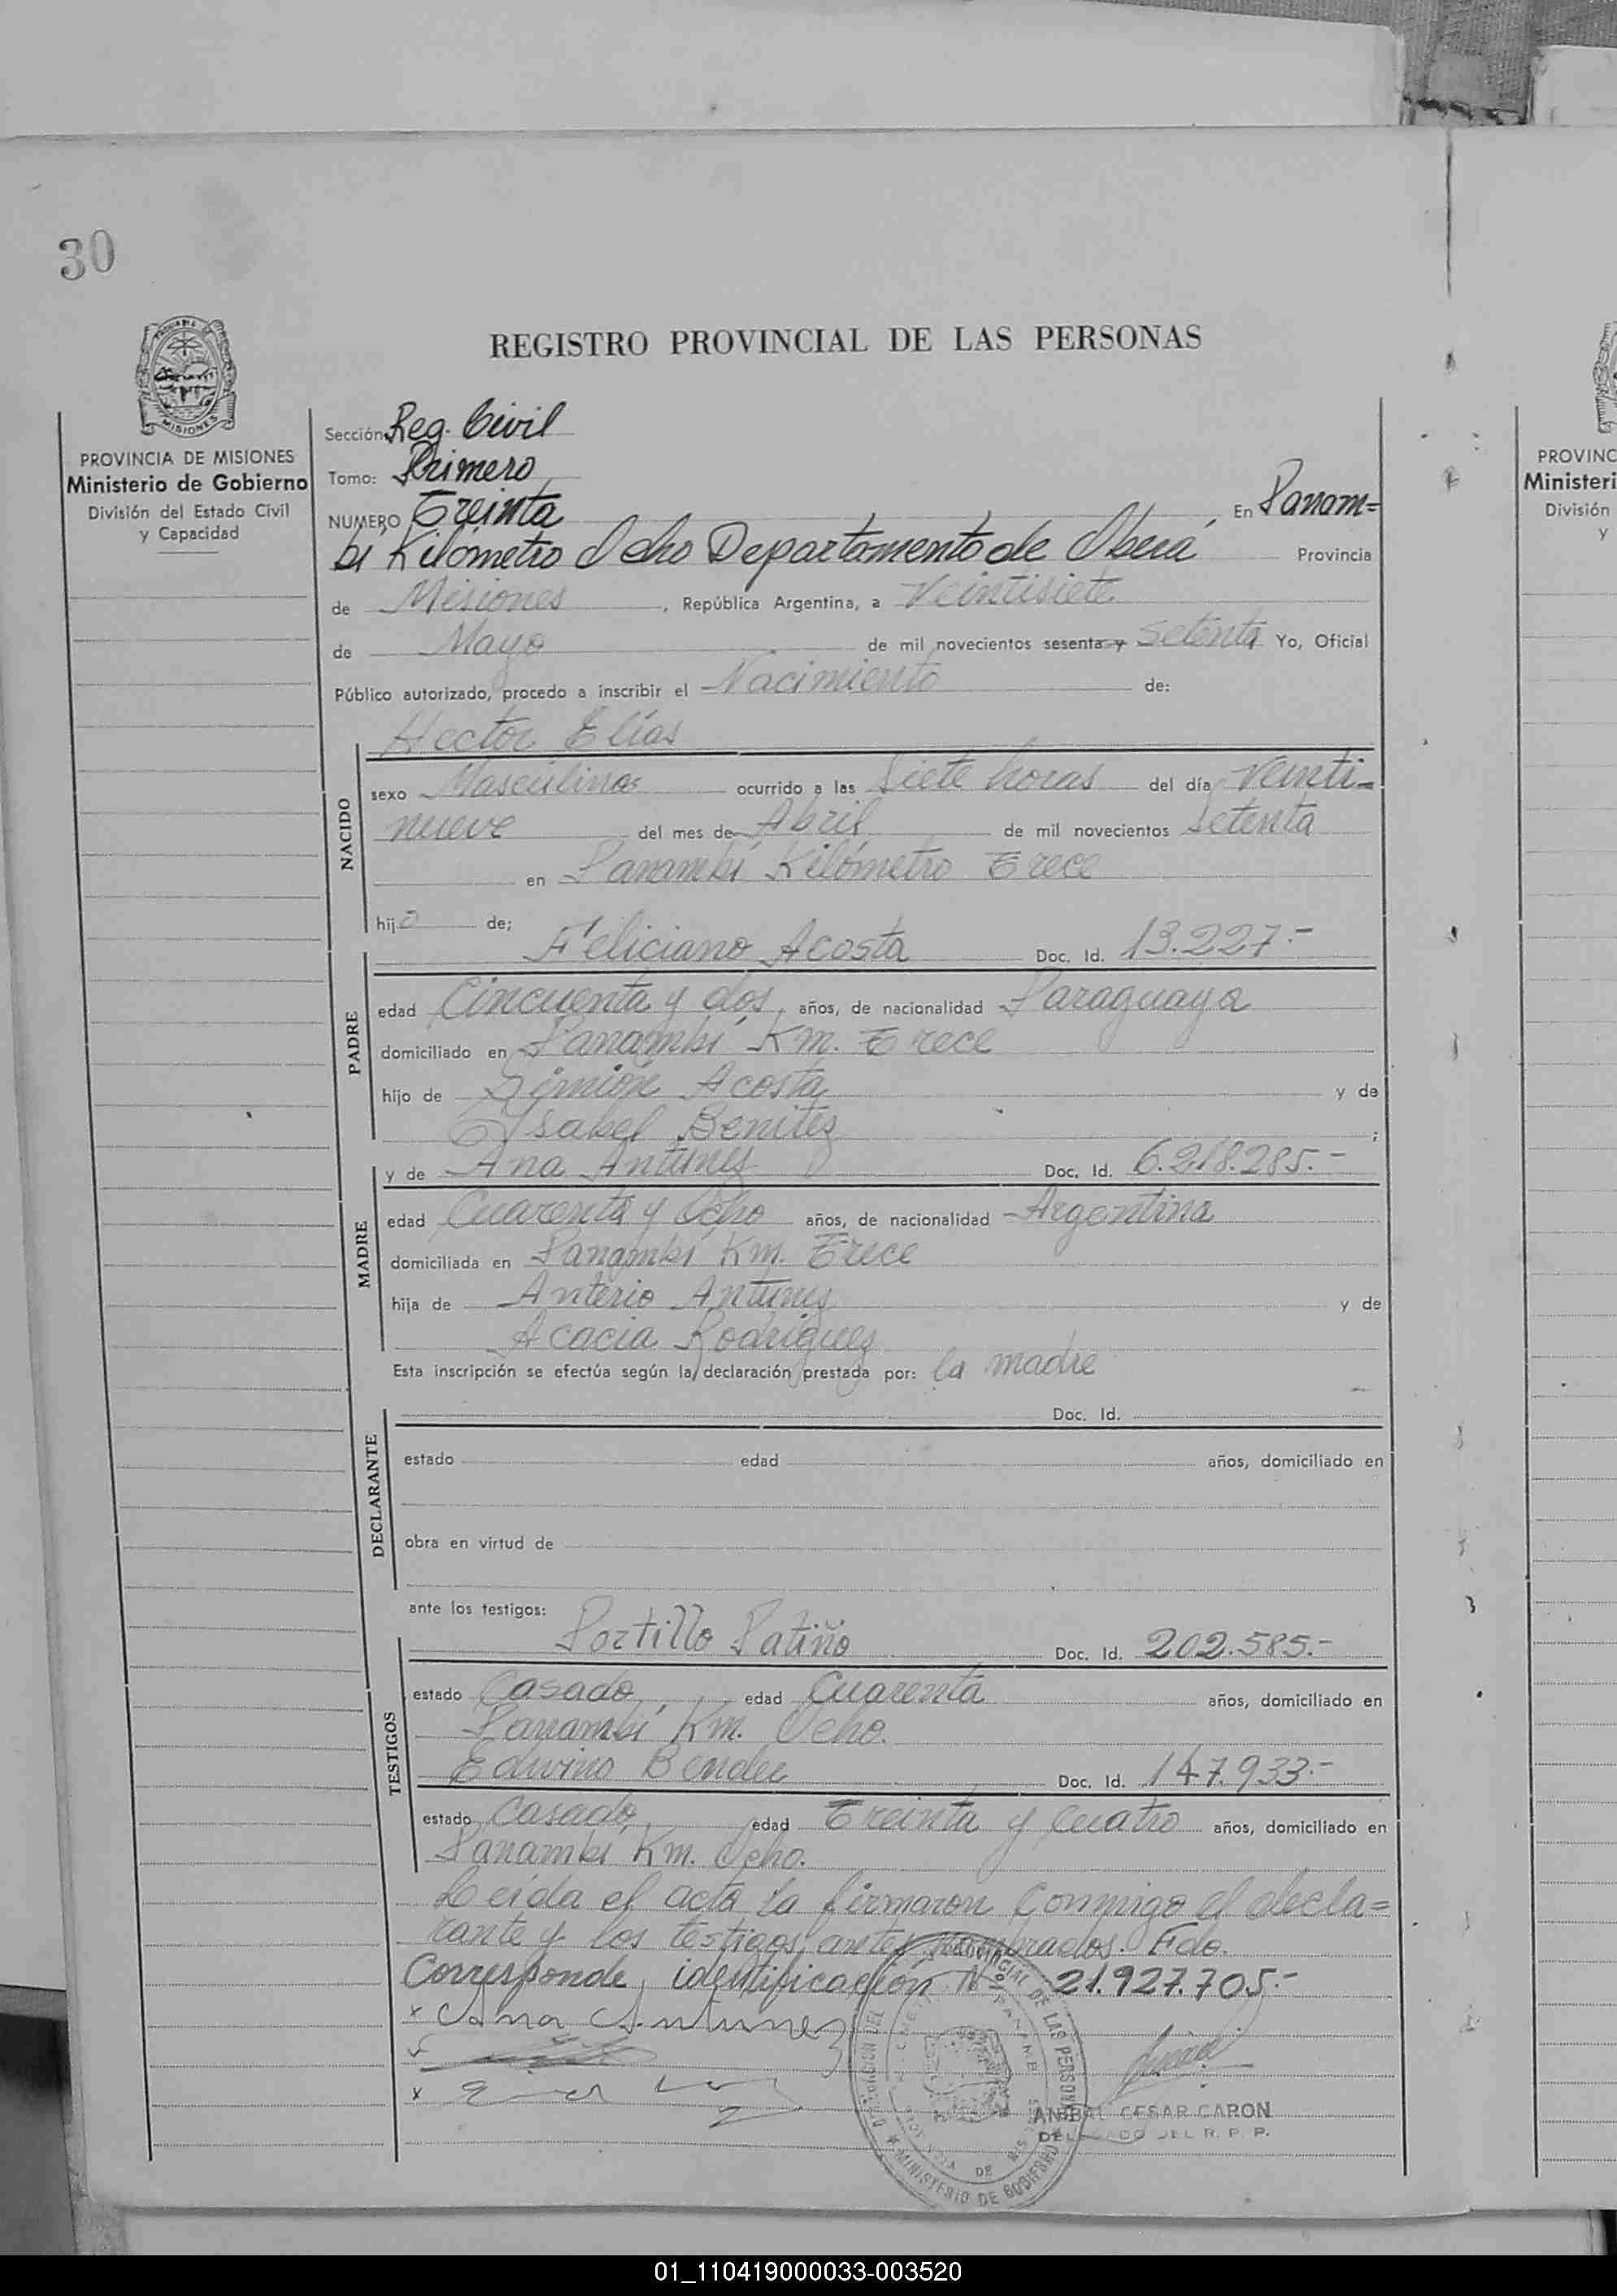 30
REGISTRO PROVINCIAL DE LAS PERSONAS
MISIONES
PROVINCIA DE MISIONES
Ministerio de Gobierno
División del Estado Civil
y Capacidad
Sección: Reg. Civil
Tomo: Primero
NUMERO Treinta En Panam=
bí Kilómetro Ocho Departamento de Oberá Provincia
de Misiones, República Argentina, a Veintisiete
de Mayo de mil novecientos sesenta y Setenta Yo, Oficial
Público autorizado, procedo a inscribir el Nacimiento de:
Hector Elías
NACIDO
sexo Masculino ocurrido a las Siete horas del día Veinti-
nueve del mes de Abril de mil novecientos Setenta
en Panambí Kilómetro Trece
hijo de;
Feliciano Acosta Doc. Id. 13.227.-
PADRE
edad Cincuenta y dos, años, de nacionalidad Paraguaya
domiciliado en Panambí Km. Trece
hijo de Simión Acosta y de
Ysabel Benitez ;
y de Ana Antunez Doc. Id. 6.218.285.-
MADRE
edad Cuarenta y Ocho años, de nacionalidad Argentina
domiciliada en Panambí Km. Trece
hija de Anterio Antunez y de
Acacia Rodriguez
Esta inscripción se efectúa según la declaración prestada por: la madre
Doc. Id.
DECLARANTE
estado edad años, domiciliado en
obra en virtud de
ante los testigos:
Portillo Patiño Doc. Id. 202.585.-
TESTIGOS
estado Casado, edad Cuarenta años, domiciliado en
Panambí Km. Ocho.
Edwino Bender Doc. Id. 147.933.-
estado Casado, edad Treinta y Cuatro años, domiciliado en
Panambí Km. Ocho.
Leída el acta la firmaron Conmigo el decla=
rante y los testigos antes nombrados. Fdo.
Corresponde identificación Nº 21.927.705.-
x Ana Antunez
x
ANIBAL CESAR CARON
DELEGADO DEL R. P. P.
MINISTERIO DE GOBIERNO
PROVINC
Ministeri
División
y
01_110419000033-003520